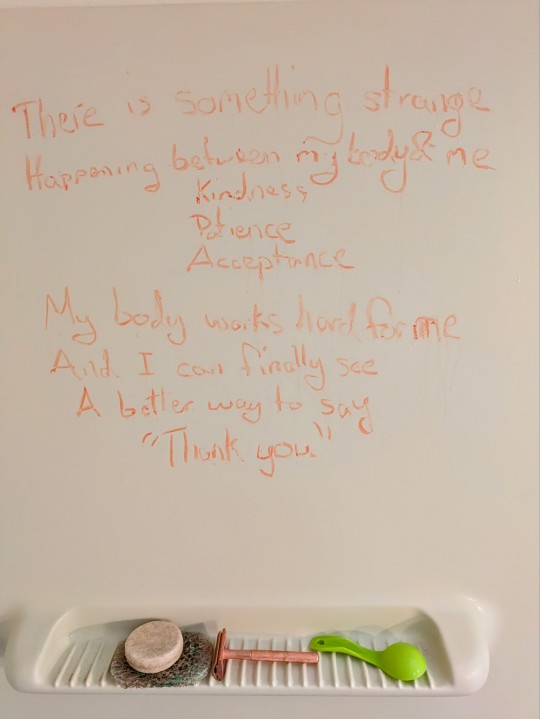 There is something strange
Happening between my body & me
Kindness
Patience
Acceptance
My body works hard for me
And I can finally see
A better way to say
"Thank you."